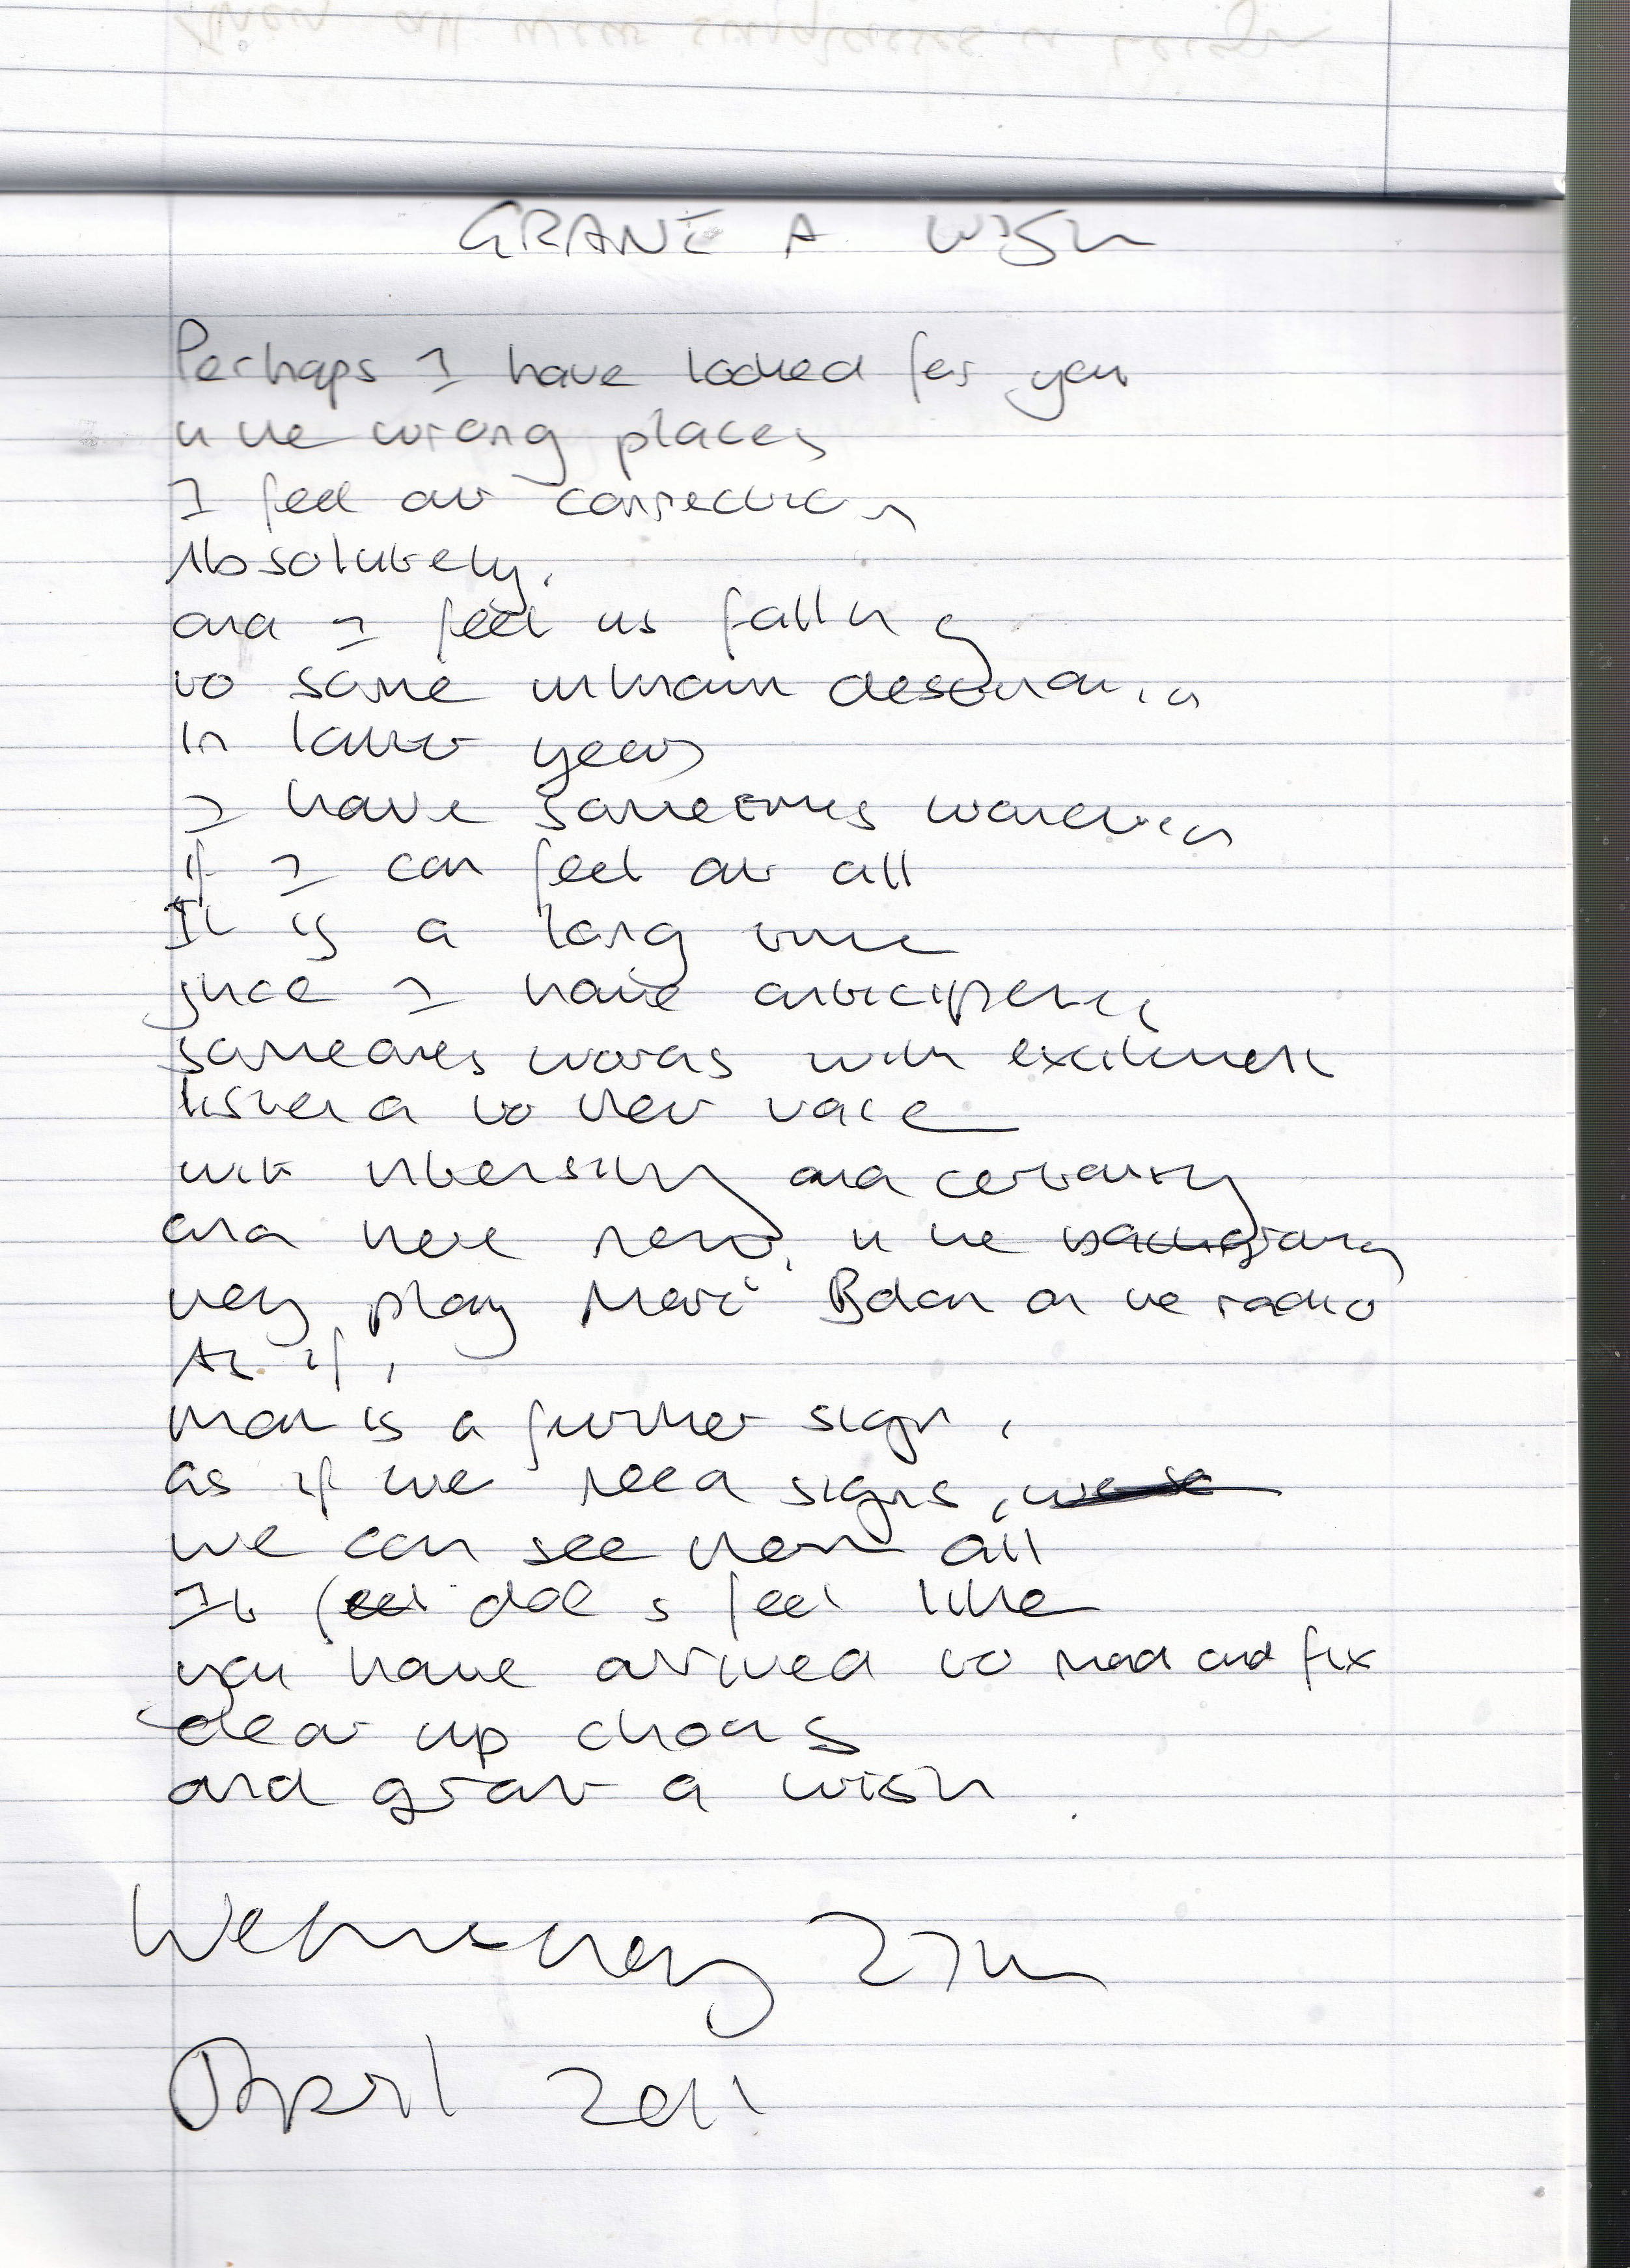 GRANT A WISH
Perhaps I have looked for you
in the wrong places
I feel our connection
Absolutely.
and I feel us falling
to some unknown destination
In later years
I have sometimes wondered
if I can feel at all
It is a long time
since I have anticipated
someones words with excitement
listened to their voice
with intensity and certainty
and here now, in the background
they play Marc Bolan on the radio
As if,
that is a further sign,
as if we need signs,
we can see them all
It feel does feel like
you have arrived to mend and fix
clear up chaos
and grant a wish
Wednesday 27th
April 2011